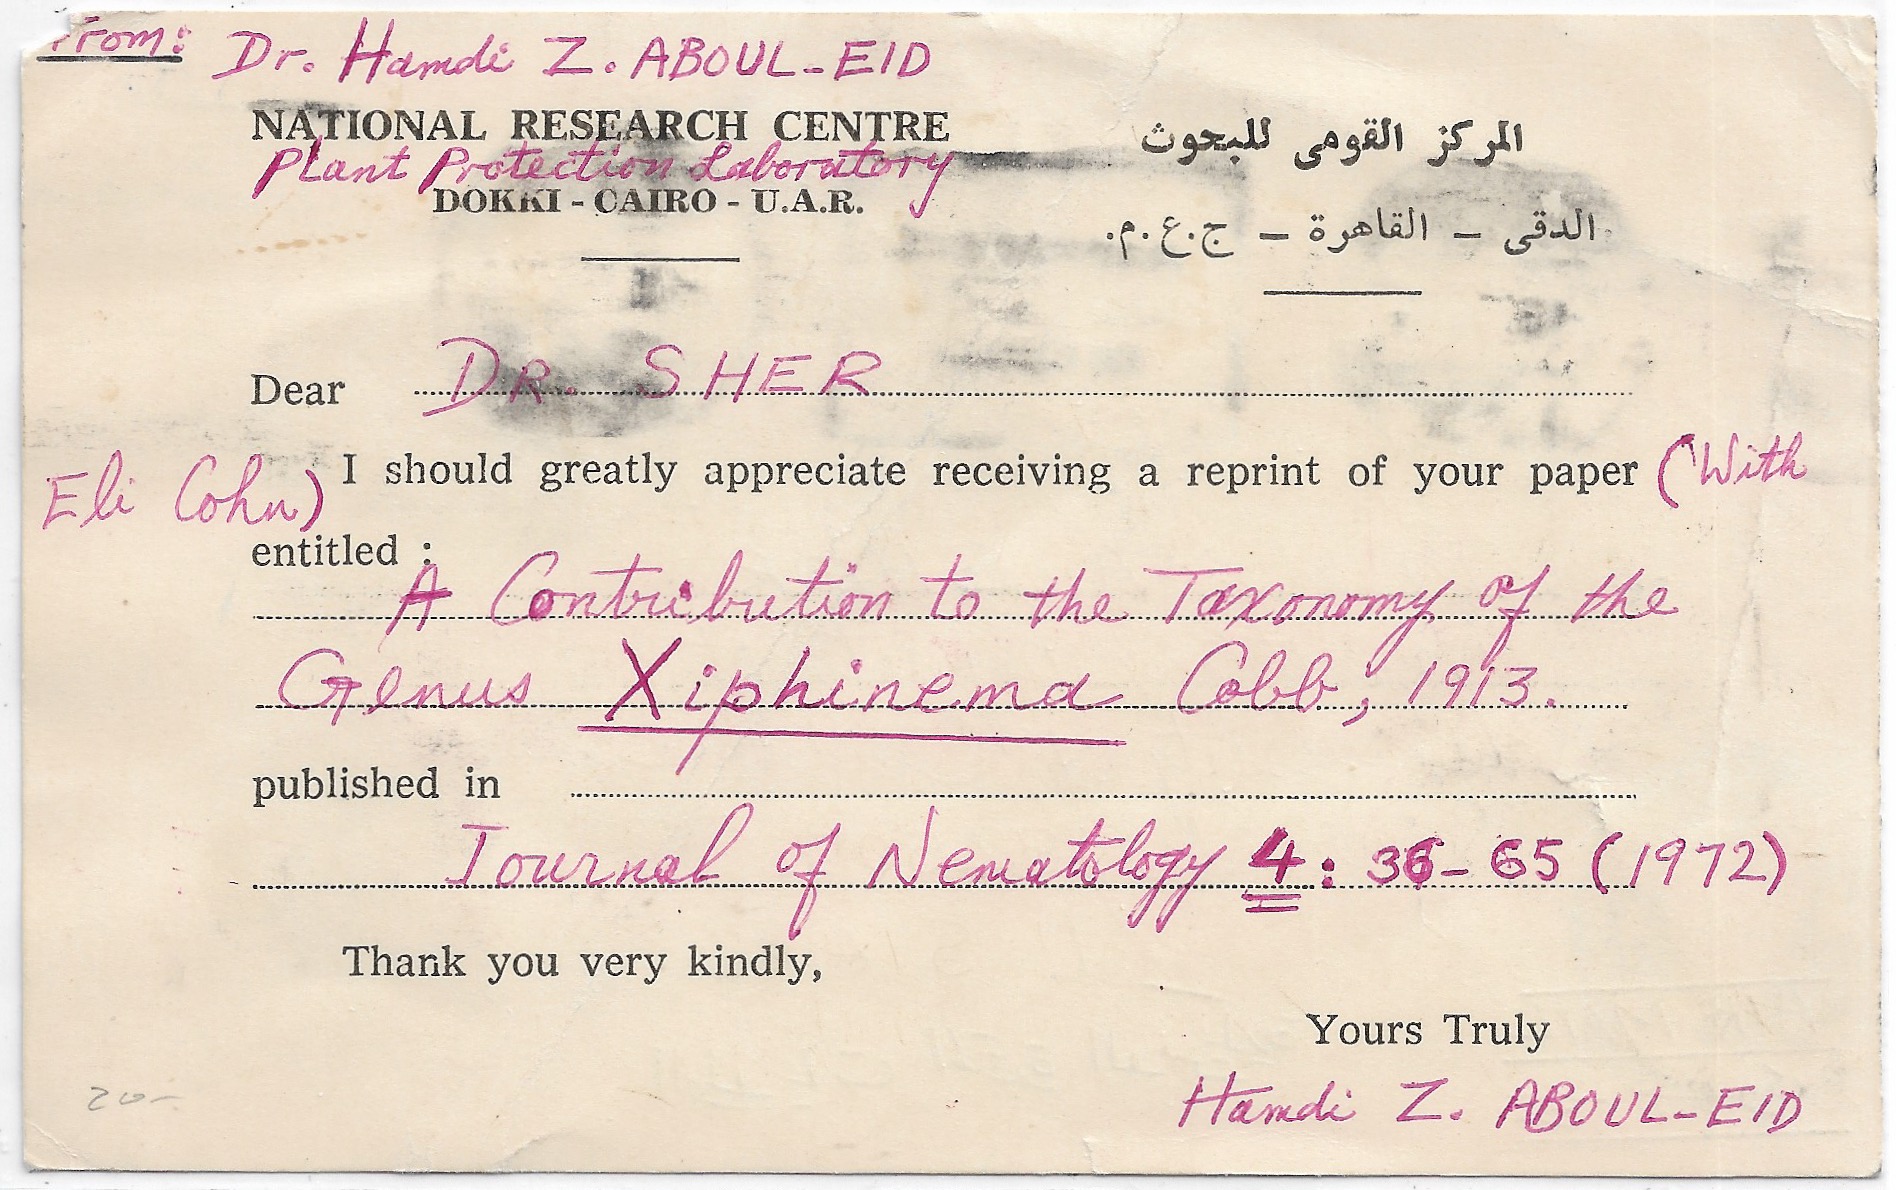 From: Dr. Hamdi Z. ABOUL-EID
NATIONAL RESEARCH CENTRE
Plant Protection Laboratory
DOKKI - CAIRO - U.A.R.
المركز القومى للبحوث
الدقى – القاهرة – ج.ع.م.
Dear DR. SHER
I should greatly appreciate receiving a reprint of your paper (With
Eli Cohn)
entitled :
A Contribution to the Taxonomy of the
Genus Xiphinema Cobb, 1913.
published in
Journal of Nematology 4: 36-65 (1972)
Thank you very kindly,
Yours Truly
Hamdi Z. ABOUL-EID
20-